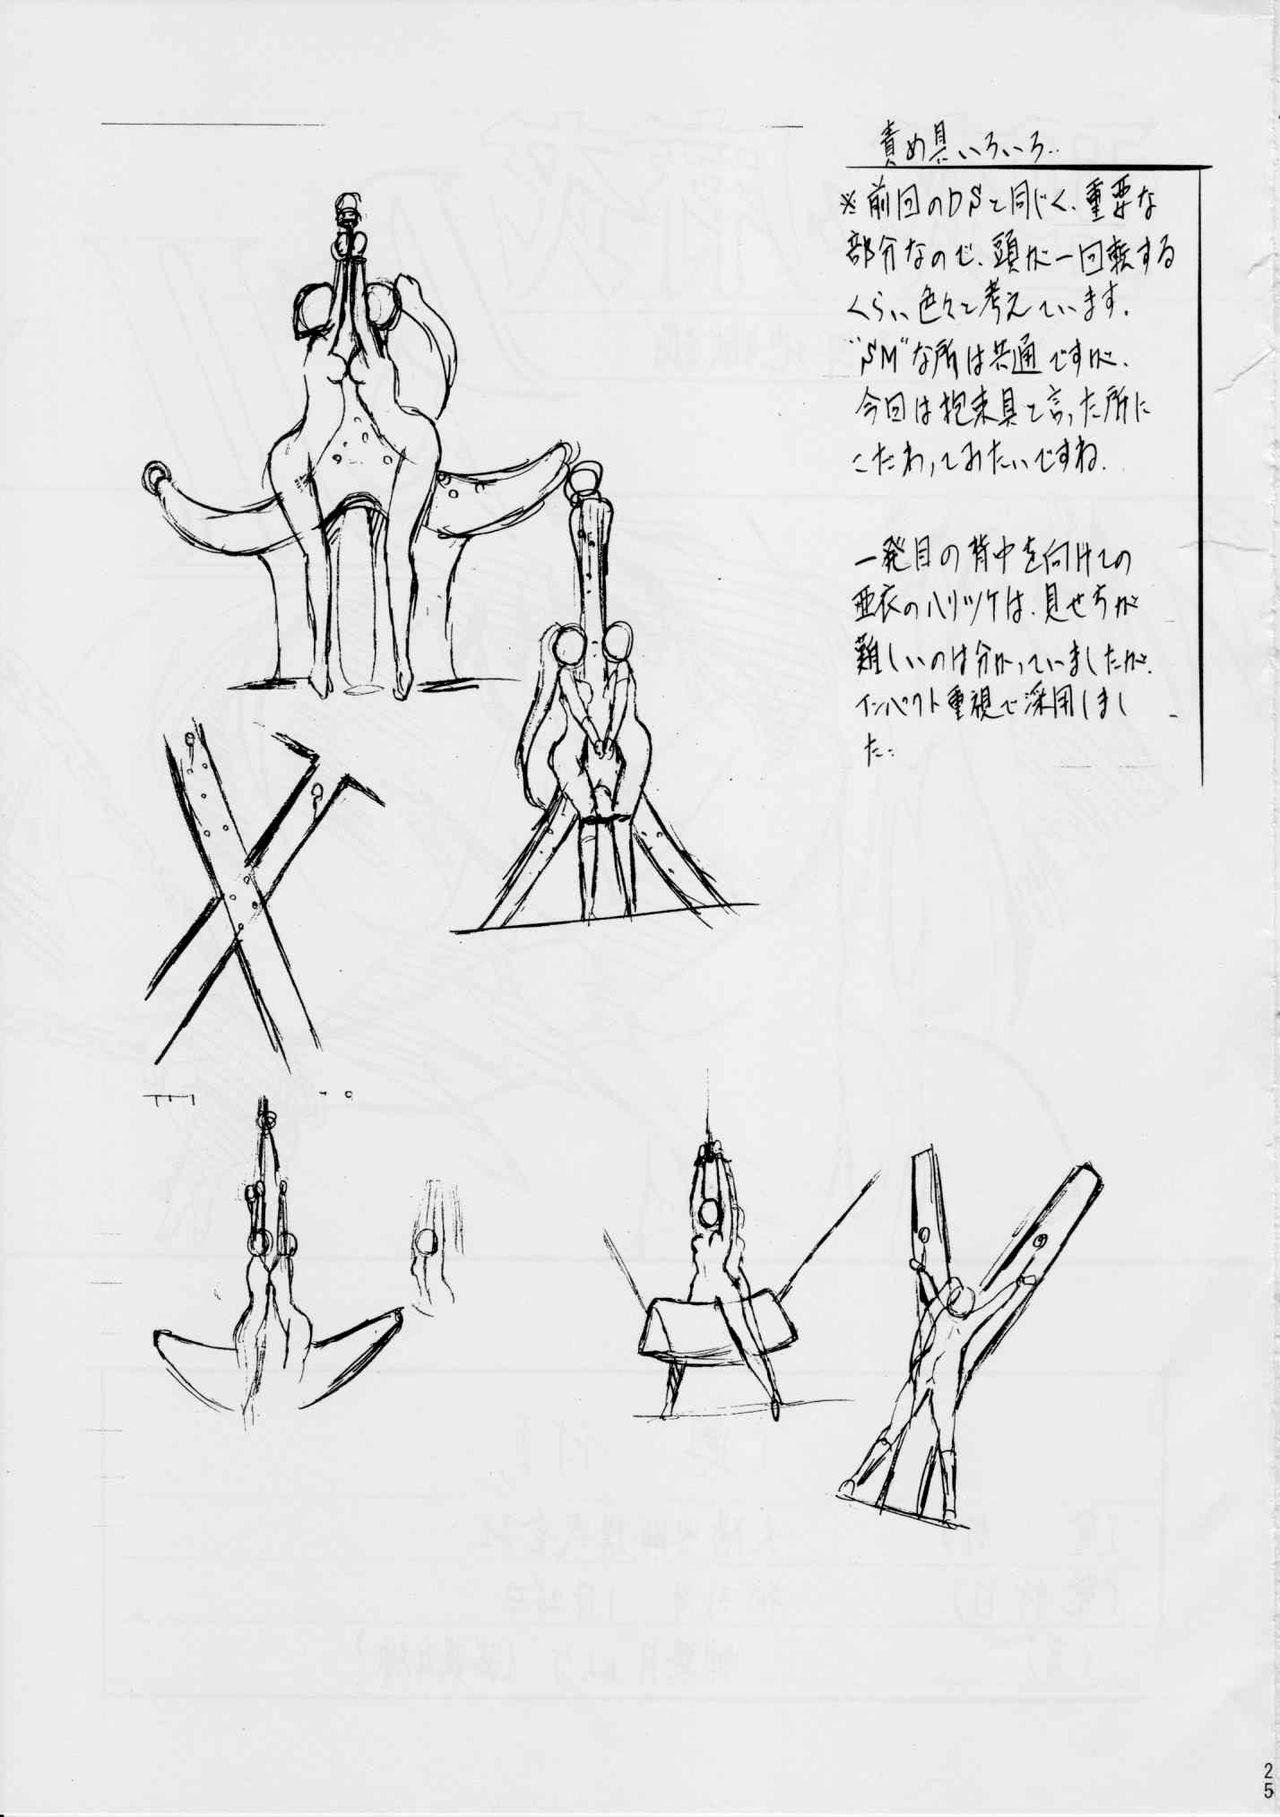 責め具いろいろ..
※前回のDSと同じく、重要な
部分なので、頭が一回転する
くらい色々と考えています。
"SM"な所は共通ですが、
今回は拘束具と言った所に
こだわってみたいですね。
一発目の背中を向けての
亜衣のハリツケは、見せ方が
難しいのは分かっていましたが、
インパクト重視で採用しまし
た..
25